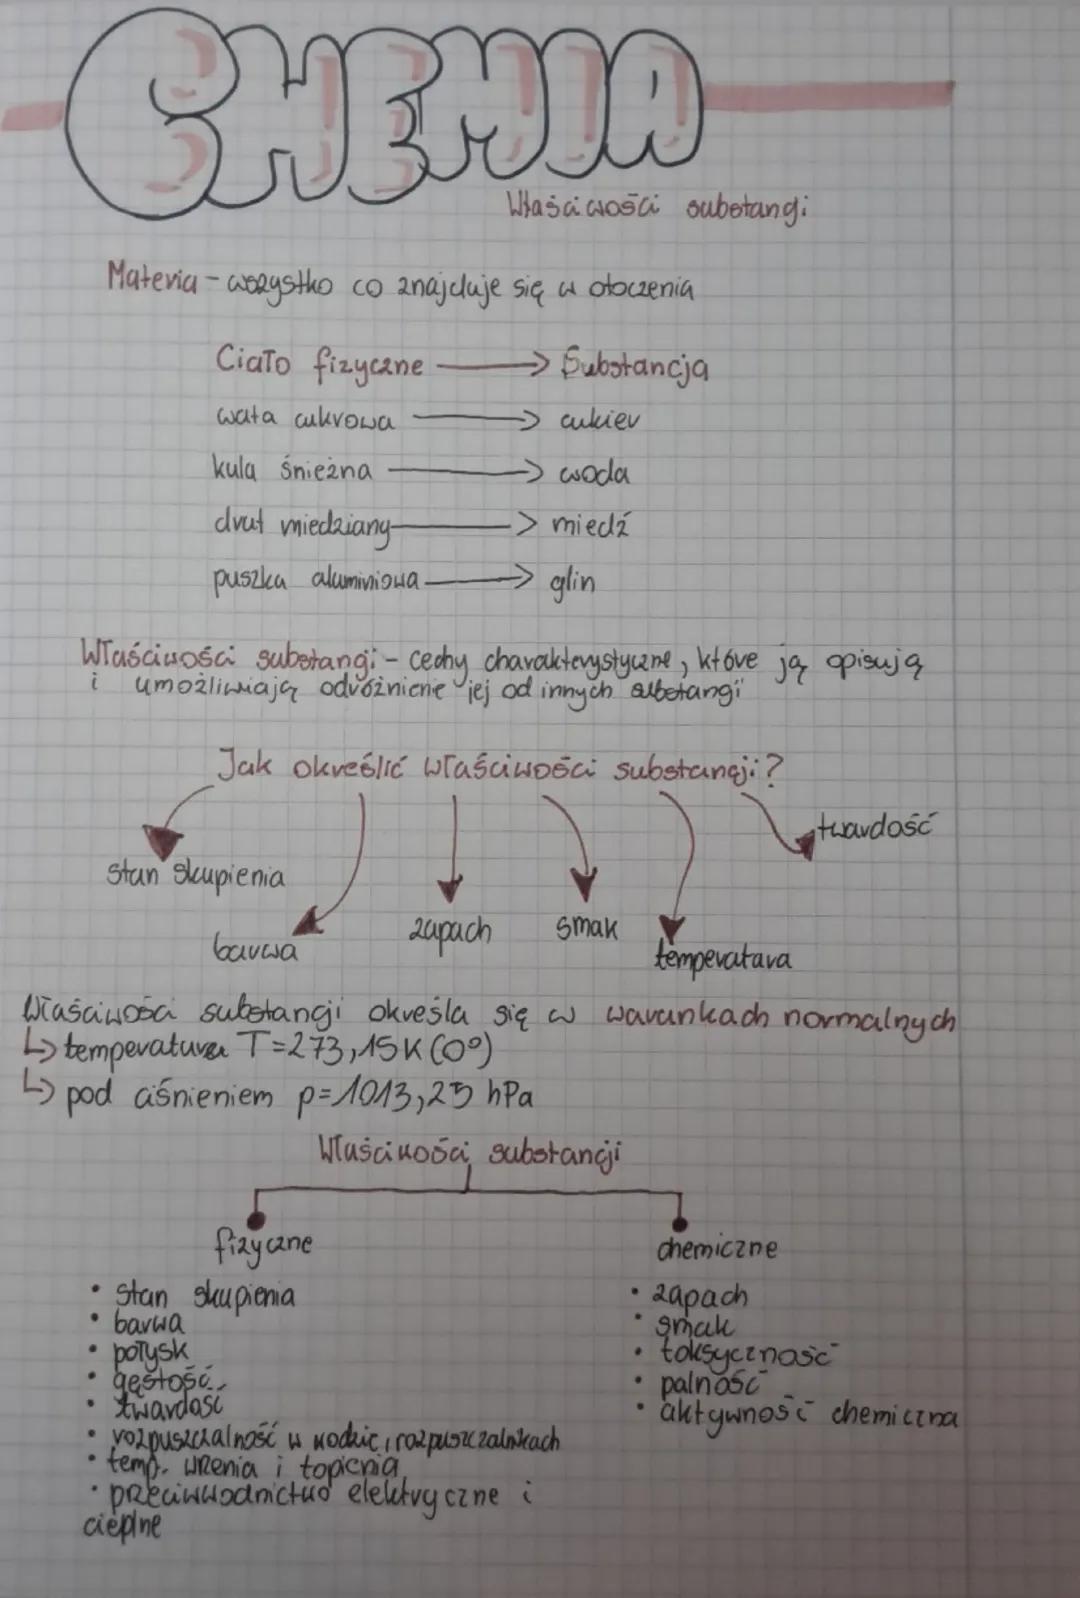 CHEMIA
Właściwości substangi
Materia - wszystko co znajduje się w otoczenia
Ciało fizyczne → Substancja
wata cukrowa → cukier
kula śnieżna → woda
drut miedziany → miedź
puszka aluminiowa → glin
Właściwości substangi - cechy charakterystyczne, które ją opisują
i umożliwiają odróżnienie jej od innych substangi
Jak określić właściwości substancji?
twardość
stan skupienia
zapach smak
barwa temperatura
Właściwości substangi określa się w warunkach normalnych
↳ temperatura T=273,15K (0°)
↳ pod ciśnieniem p=1013,25 hPa
Właściwości substancji
fizyczne chemiczne
• stan skupienia • zapach
• barwa • smak
• połysk • toksyczność
• gęstość • palność
• twardość • aktywność chemiczna
• rozpuszczalność w wodzie i rozpuszczalnikach
• temp. wrzenia i topienia
• przeciwwodnictwo elektryczne i
cieplne